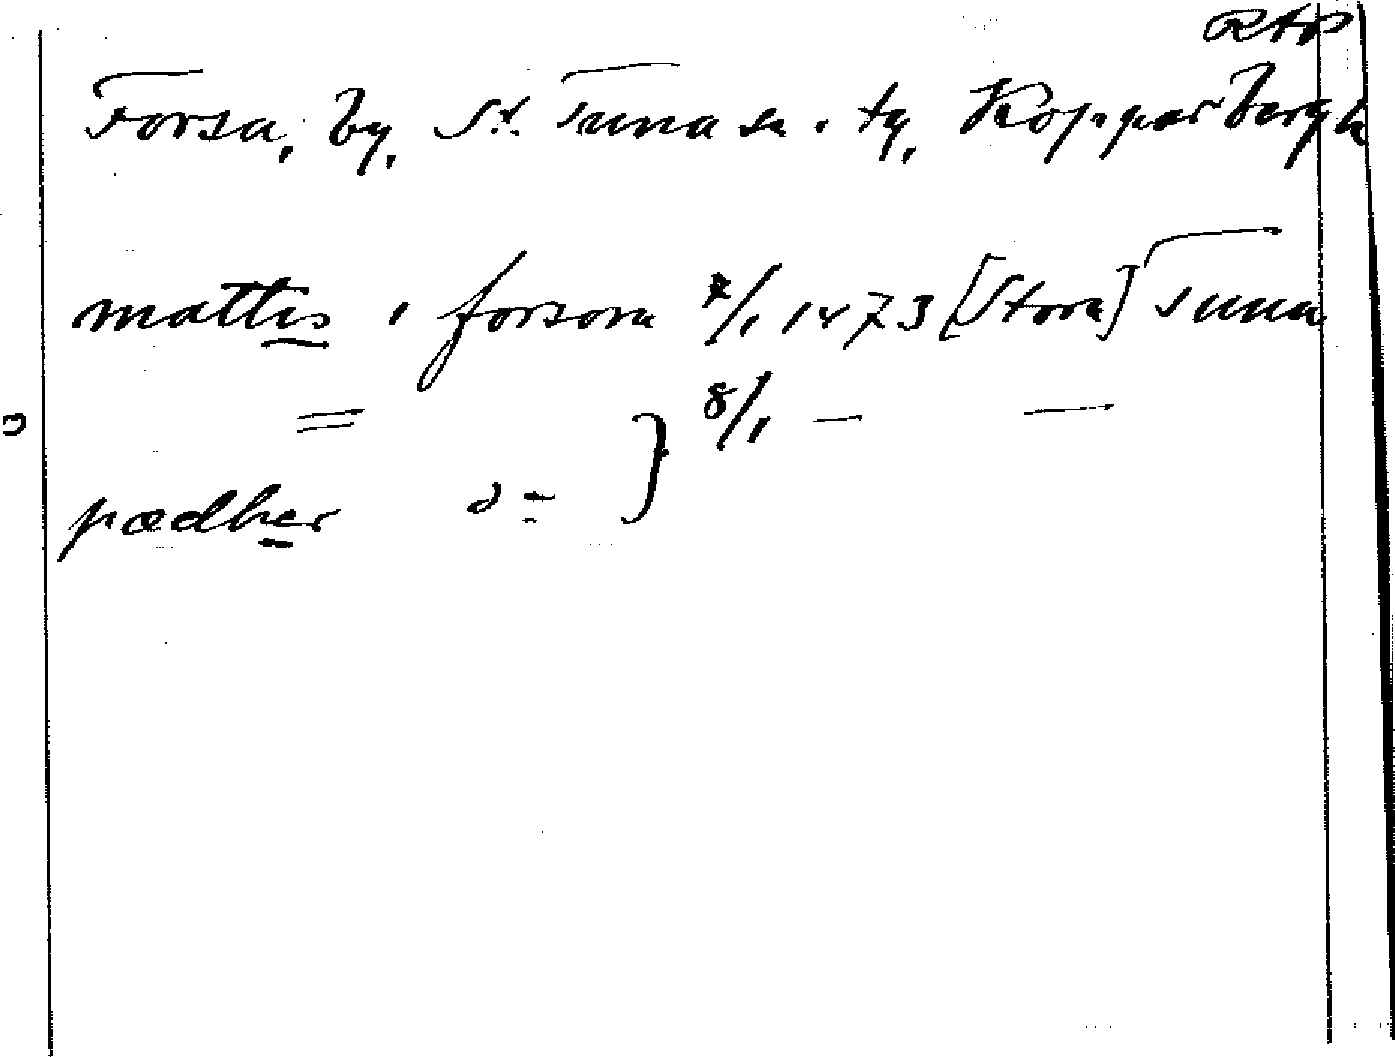 RAP
Forsa, by, St. Tuna sn. tg, Kopparbergs
mattis i forsom 7/1 1473 [Stora] Tuna
= } 8/1 — —
pædher d:=